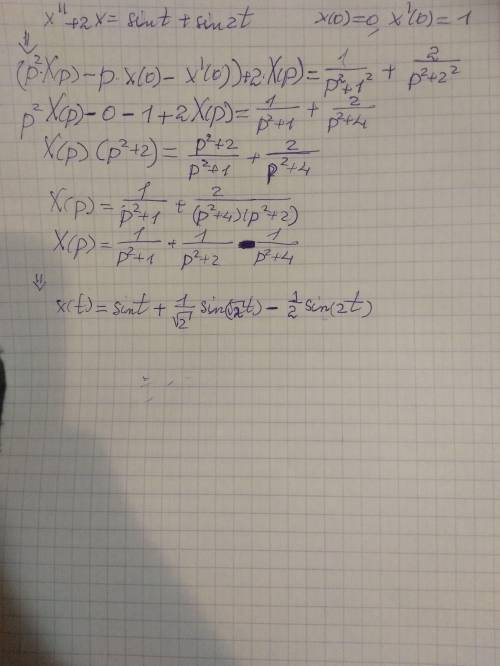 x'' + 2x = sint + sin2t x(0)=0, x'(0)=1
⇓
(p²·X(p) − p·x(0) − x'(0)) + 2·X(p) = 1/(p²+1²) + 2/(p²+2²)
p²X(p) − 0 − 1 + 2X(p) = 1/(p²+1) + 2/(p²+4)
X(p)(p²+2) = (p²+2)/(p²+1) + 2/(p²+4)
X(p) = 1/(p²+1) + 2/((p²+4)(p²+2))
X(p) = 1/(p²+1) + 1/(p²+2) − 1/(p²+4)
⇓
x(t) = sint + 1/√2 sin(√2t) − 1/2 sin(2t)